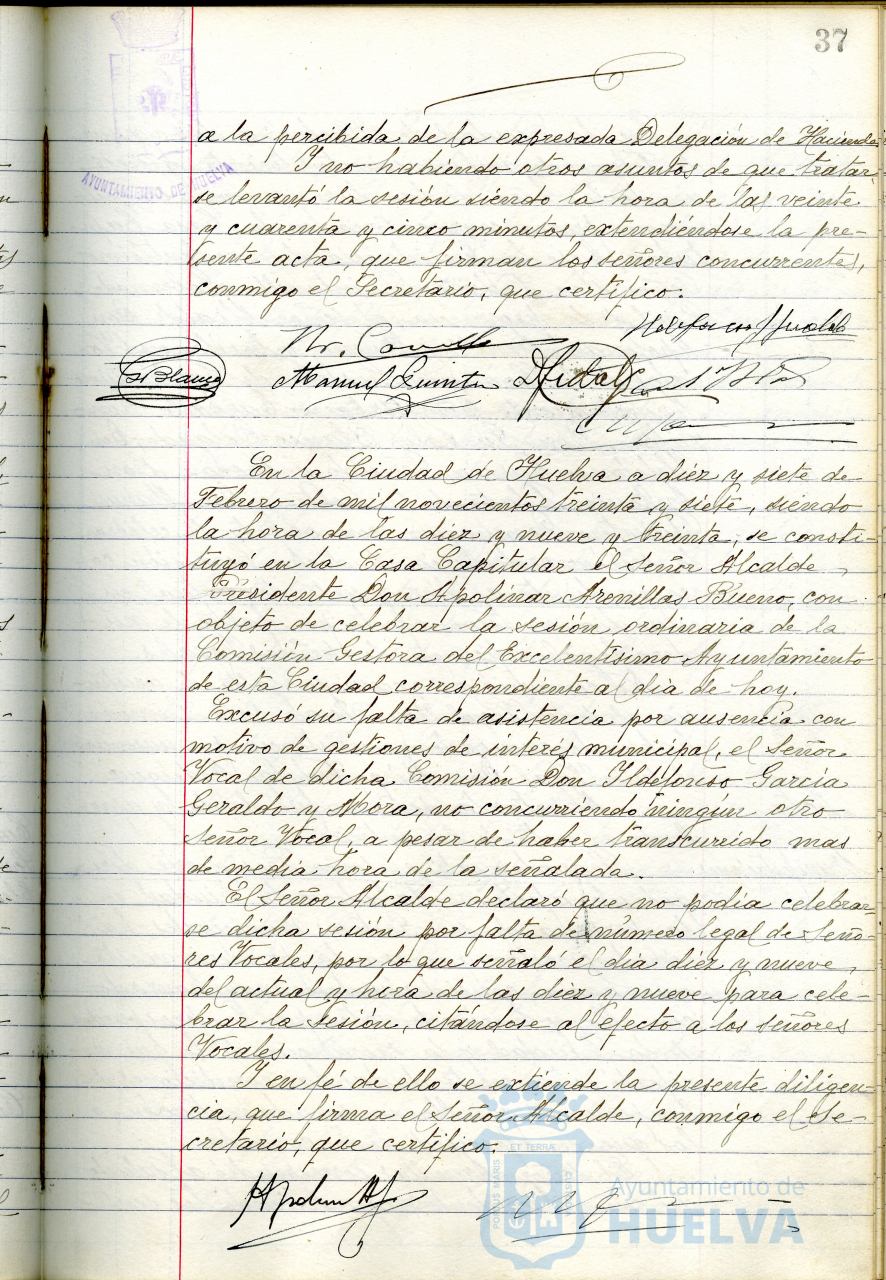 37
AYUNTAMIENTO DE HUELVA
a la percibida de la expresada Delegación de Hacienda.
Y no habiendo otros asuntos de que tratar,
se levantó la sesión siendo la hora de las veinte
y cuarenta y cinco minutos, extendiéndose la pre-
sente acta, que firman los señores concurrentes,
conmigo el Secretario, que certifico.
Manuel Quintín
En la Ciudad de Huelva a diéz y siete de
Febrero de mil novecientos treinta y siete, siendo
la hora de las diéz y nueve y treinta, se consti-
tuyó en la Casa Capitular el Señor Alcalde
Presidente Don Apolinar Arenillas Bueno, con
objeto de celebrar la sesión ordinaria de la
Comisión Gestora del Excelentísimo Ayuntamiento
de esta Ciudad correspondiente al dia de hoy.
Excusó su falta de asistencia por ausencia con
motivo de gestiones de interés municipal, el Señor
Vocal de dicha Comisión Don Ildefonso Garcia
Geraldo y Mora, no concurriendo ningún otro
Señor Vocal, a pesar de haber transcurrido mas
de media hora de la señalada.
El Señor Alcalde declaró que no podia celebrar-
se dicha sesión por falta de número legal de Seño-
res Vocales, por lo que señaló el dia diéz y nueve
del actual y hora de las diéz y nueve para cele-
brar la sesión, citándose al efecto a los señores
Vocales.
Y en fé de ello se extiende la presente diligen-
cia, que firma el Señor Alcalde, conmigo el Se-
cretario, que certifico.
PORTUS MARIS ET TERRÆ CUSTODIA
Ayuntamiento de
HUELVA